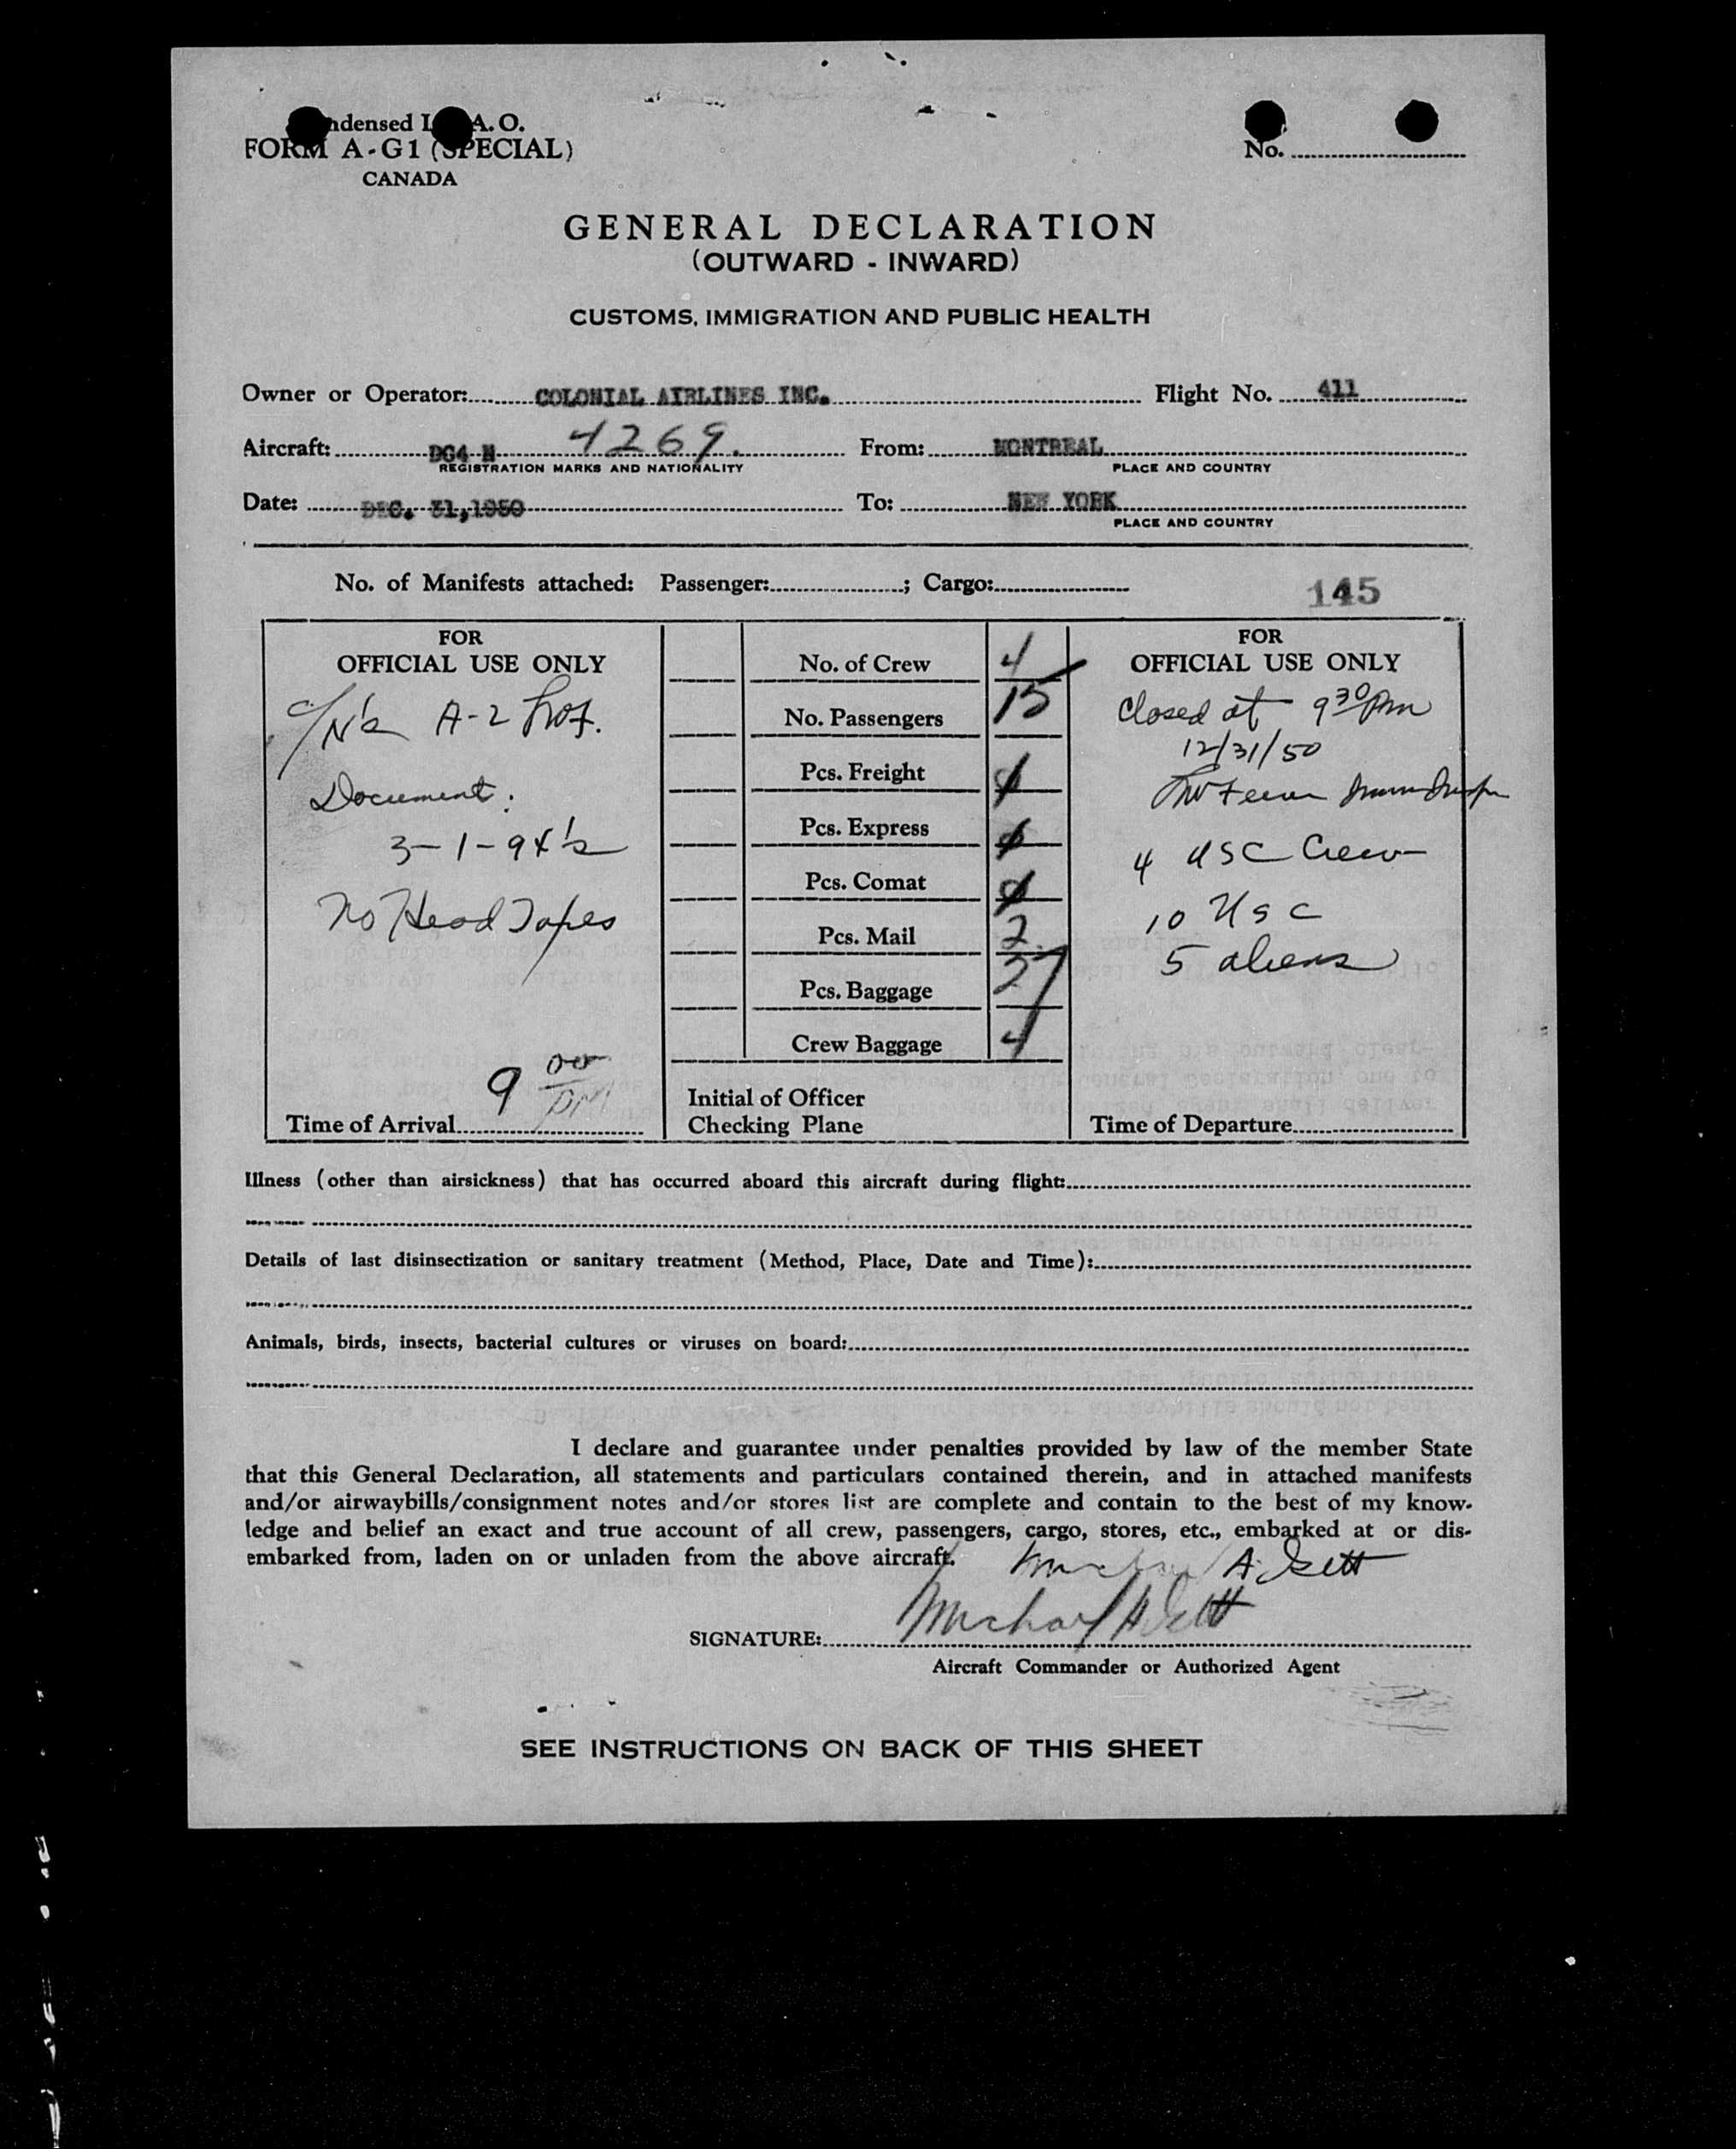 ndensed I. A. O. No.
FORM A-G1 (SPECIAL)
CANADA
GENERAL DECLARATION
(OUTWARD - INWARD)
CUSTOMS, IMMIGRATION AND PUBLIC HEALTH
Owner or Operator: COLONIAL AIRLINES INC. Flight No. 411
Aircraft: DC4 N 4269. From: MONTREAL
REGISTRATION MARKS AND NATIONALITY PLACE AND COUNTRY
Date: DEC. 31,1950 To: NEW YORK
PLACE AND COUNTRY
No. of Manifests attached: Passenger: ; Cargo:
145
FOR
OFFICIAL USE ONLY
A-2
Document.
3-1-94's
No Head
Time of Arrival 9 00 PM
No. of Crew 4
No. Passengers 15
Pcs. Freight
Pcs. Express
Pcs. Comat
Pcs. Mail 2
Pcs. Baggage 27
Crew Baggage 4
Initial of Officer
Checking Plane
FOR
OFFICIAL USE ONLY
Closed at 9 30 Pm
12/31/50
4 USC Crew
10 USC
5 aliens
Time of Departure
Illness (other than airsickness) that has occurred aboard this aircraft during flight:
Details of last disinsectization or sanitary treatment (Method, Place, Date and Time):
Animals, birds, insects, bacterial cultures or viruses on board:
I declare and guarantee under penalties provided by law of the member State
that this General Declaration, all statements and particulars contained therein, and in attached manifests
and/or airwaybills/consignment notes and/or stores list are complete and contain to the best of my know-
ledge and belief an exact and true account of all crew, passengers, cargo, stores, etc., embarked at or dis-
embarked from, laden on or unladen from the above aircraft.
SIGNATURE: Michael A
Aircraft Commander or Authorized Agent
SEE INSTRUCTIONS ON BACK OF THIS SHEET